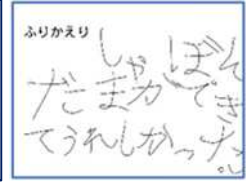 ふりかえり
しゃぼん
だまができ
てうれしかった。